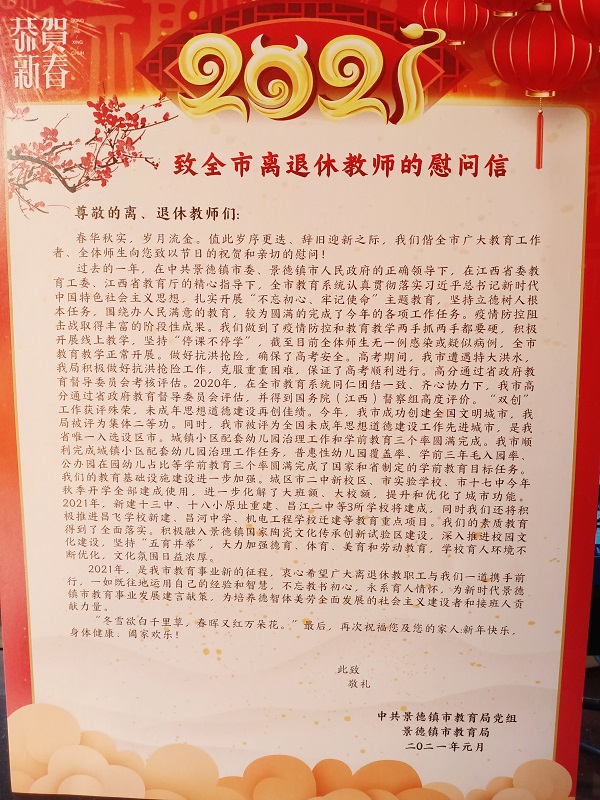 恭賀
新春
GONG
XING
CHUN
2021
致全市离退休教师的慰问信
尊敬的离、退休教师们:
春华秋实，岁月流金。值此岁序更迭、辞旧迎新之际，我们偕全市广大教育工作
者、全体师生向您致以节日的祝贺和亲切的慰问！
过去的一年，在中共景德镇市委、景德镇市人民政府的正确领导下，在江西省委教
育工委、江西省教育厅的精心指导下，全市教育系统认真贯彻落实习近平总书记新时代
中国特色社会主义思想，扎实开展“不忘初心、牢记使命”主题教育，坚持立德树人根
本任务，围绕办人民满意的教育，较为圆满的完成了今年的各项工作任务。疫情防控阻
击战取得丰富的阶段性成果。我们做到了疫情防控和教育教学两手抓两手都要硬，积极
开展线上教学，坚持“停课不停学”，截至目前全体师生无一例感染或疑似病例，全市
教育教学正常开展。做好抗洪抢险，确保了高考安全。高考期间，我市遭遇特大洪水，
我局积极做好抗洪抢险工作，克服重重困难，保证了高考顺利进行。高分通过省政府教
育督导委员会考核评估。2020年，在全市教育系统同仁团结一致、齐心协力下，我市高
分通过省政府教育督导委员会评估，并得到国务院（江西）督察组高度评价。“双创”
工作获评殊荣，未成年思想道德建设再创佳绩。今年，我市成功创建全国文明城市，我
局被评为集体二等功。同时，我市被评为全国未成年思想道德建设工作先进城市，是我
省唯一入选设区市。城镇小区配套幼儿园治理工作和学前教育三个率圆满完成。我市顺
利完成城镇小区配套幼儿园治理工作任务，普惠性幼儿园覆盖率、学前三年毛入园率、
公办园在园幼儿占比等学前教育三个率圆满完成了国家和省制定的学前教育目标任务。
我们的教育基础设施建设进一步加强。城区市二中新校区、市实验学校、市十七中今年
秋季开学全部建成使用，进一步化解了大班额、大校额，提升和优化了城市功能。
2021年，新建十三中、十八小原址重建、昌江二中等3所学校将建成，同时我们还将积
极推进昌飞学校新建、昌河中学、机电工程学校迁建等教育重点项目。我们的素质教育
得到了全面落实。积极融入景德镇国家陶瓷文化传承创新试验区建设，深入推进校园文
化建设，坚持“五育并举”，大力加强德育、体育、美育和劳动教育，学校育人环境不
断优化，文化氛围日益浓厚。
2021年，是我市教育事业新的征程，衷心希望广大离退休教职工与我们一道携手前
行，一如既往地运用自己的经验和智慧，不忘教书初心，永系育人情怀，为新时代景德
镇市教育事业发展建言献策，为培养德智体美劳全面发展的社会主义建设者和接班人贡
献力量。
“冬雪欲白千里草，春晖又红万朵花。”最后，再次祝福您及您的家人:新年快乐，
身体健康、阖家欢乐！
此致
敬礼
中共景德镇市教育局党组
景德镇市教育局
二〇二一年元月